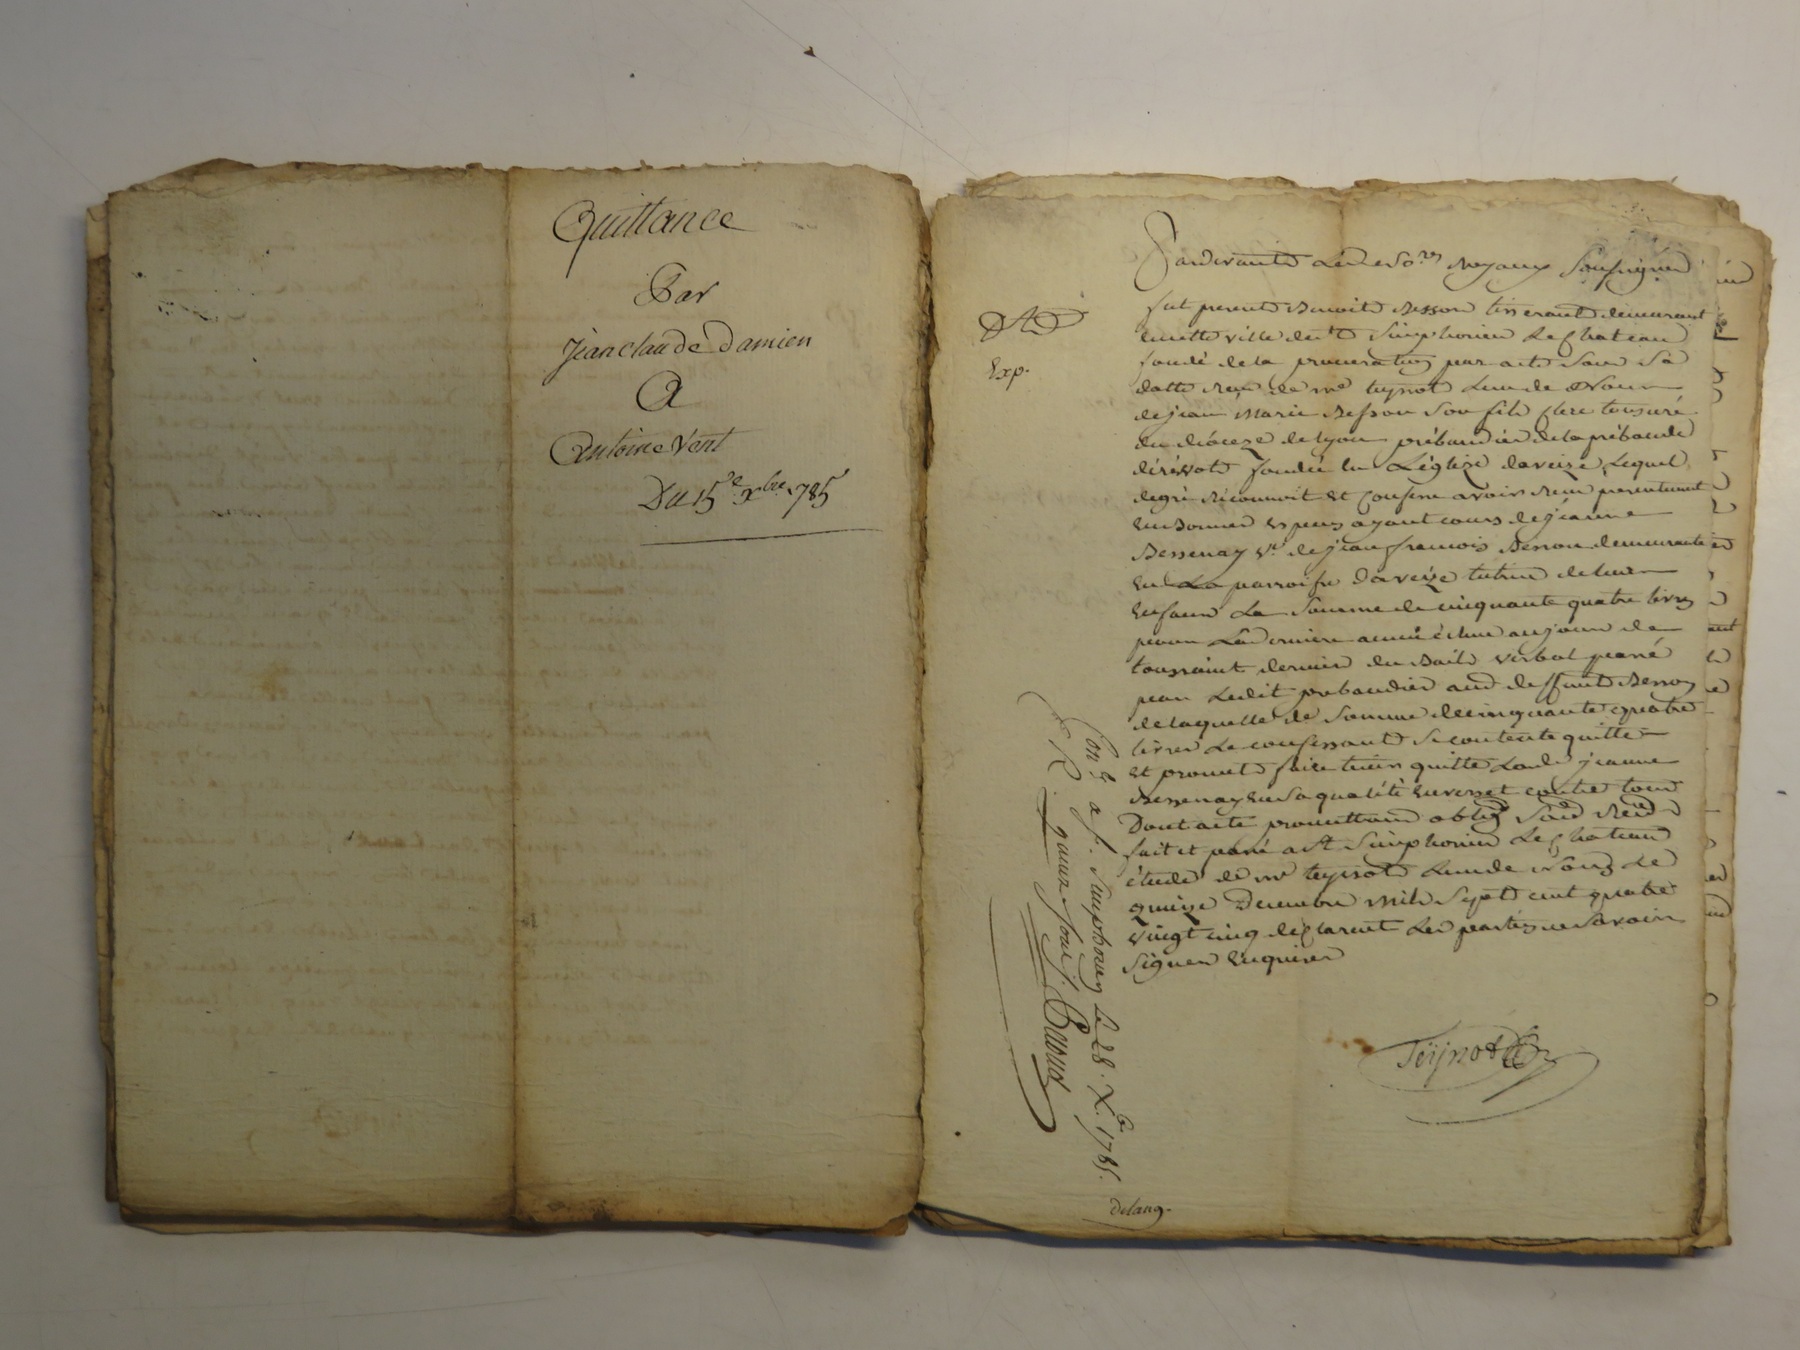 Quittance
Par
Jean claude Damien
A
Antoine Vent
Du 15e xbre 1785
Pardevant Les No.res Royaux soussignés
fut present Benoit Besson tisserant demeurant
en cette ville de st Simphorien Le Chateau
fondé de la procuration par acte sous sa
datte reçu de me teynot L'un de Nous
de jean Marie Besson son fils clerc tonsuré
du diocèze de lyon prébandier de la prébande
fondée en L'églize daveize Lequel
de gré reconnoit et confesse avoir reçu presentement
en bonnes especes ayant cours de jeanne
Bessenay ve de jean francois Besson demeurante
en La parroisse daveize tutrice de leurs
enfans La somme de cinquante quatre livres
pour La derniere année échue au jour de la
toussaint dernier du Bail verbal passé
par Ledit prebandier aud deffunt Besson
de laquelle de somme de cinquante quatre
livres Le confessant se contente quitte
et promet faire tenir quitte Lade jeanne
Bessenay en sa qualité envers et contre tous
Dont acte promettant oblig
fait et passé a St Simphorien Le Chateau
étude de me teynot L'un de Nous Le
quinze Decembre mil sept cent quatre
vingt cinq declarent Les parties ne savoir
signer Enquises
Teÿnot
Exp.
Conlé a st. Simphorien Le 28. Xbre 1785.
R. quinze sous.
delaug.